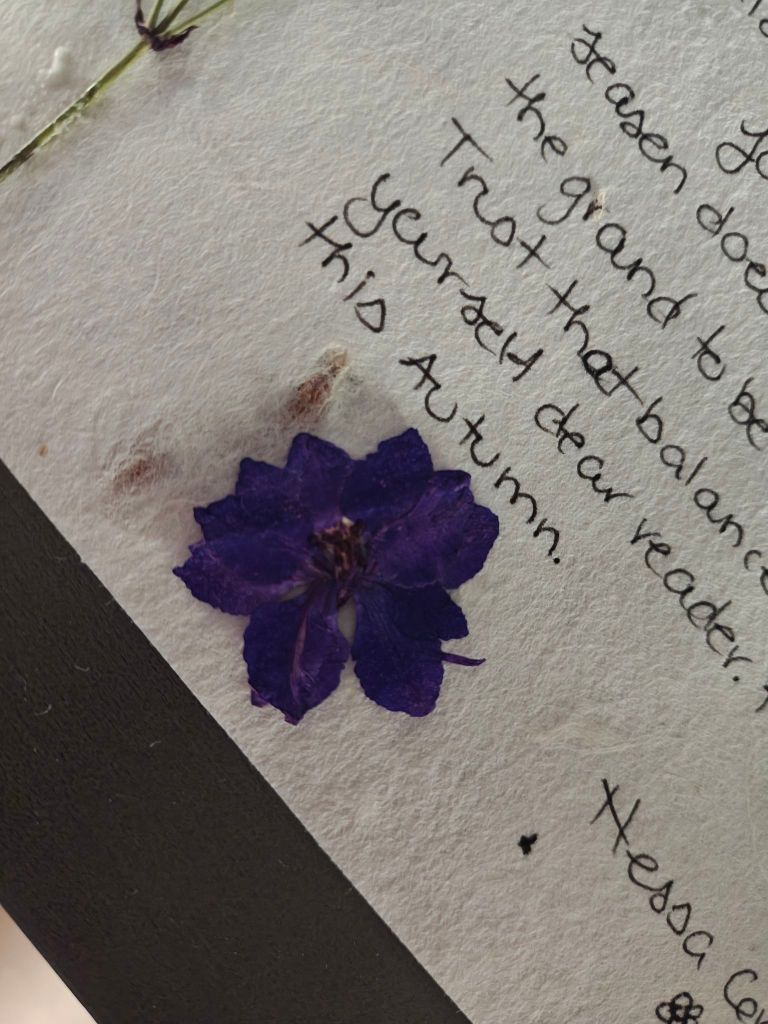 season does
the grand to be
Trust that balance
yourself dear reader.
this Autumn.
Nessa